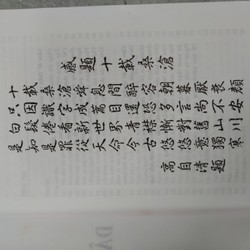 感題十載桑滄
十載桑滄舜息間醉容朝暮厭衰顏
只因識字成篇目還恐多言尚不安
白髮倦看新世界青襟慚對舊山川
是知是罪從天命今古悠悠意獨寒
高自清題